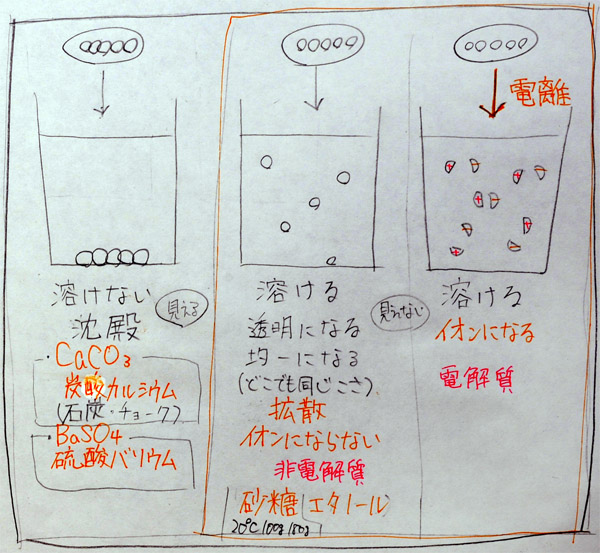 溶けない
沈殿
見える
・CaCO3
炭酸カルシウム
(石炭・チョーク)
・BaSO4
硫酸バリウム
溶ける
透明になる
均一になる
(どこでも同じこさ)
拡散
イオンにならない
非電解質
砂糖(エタノール)
20℃ 100g
見えない
電離
+
-
+
-
+
-
+
-
+
-
溶ける
イオンになる
電解質